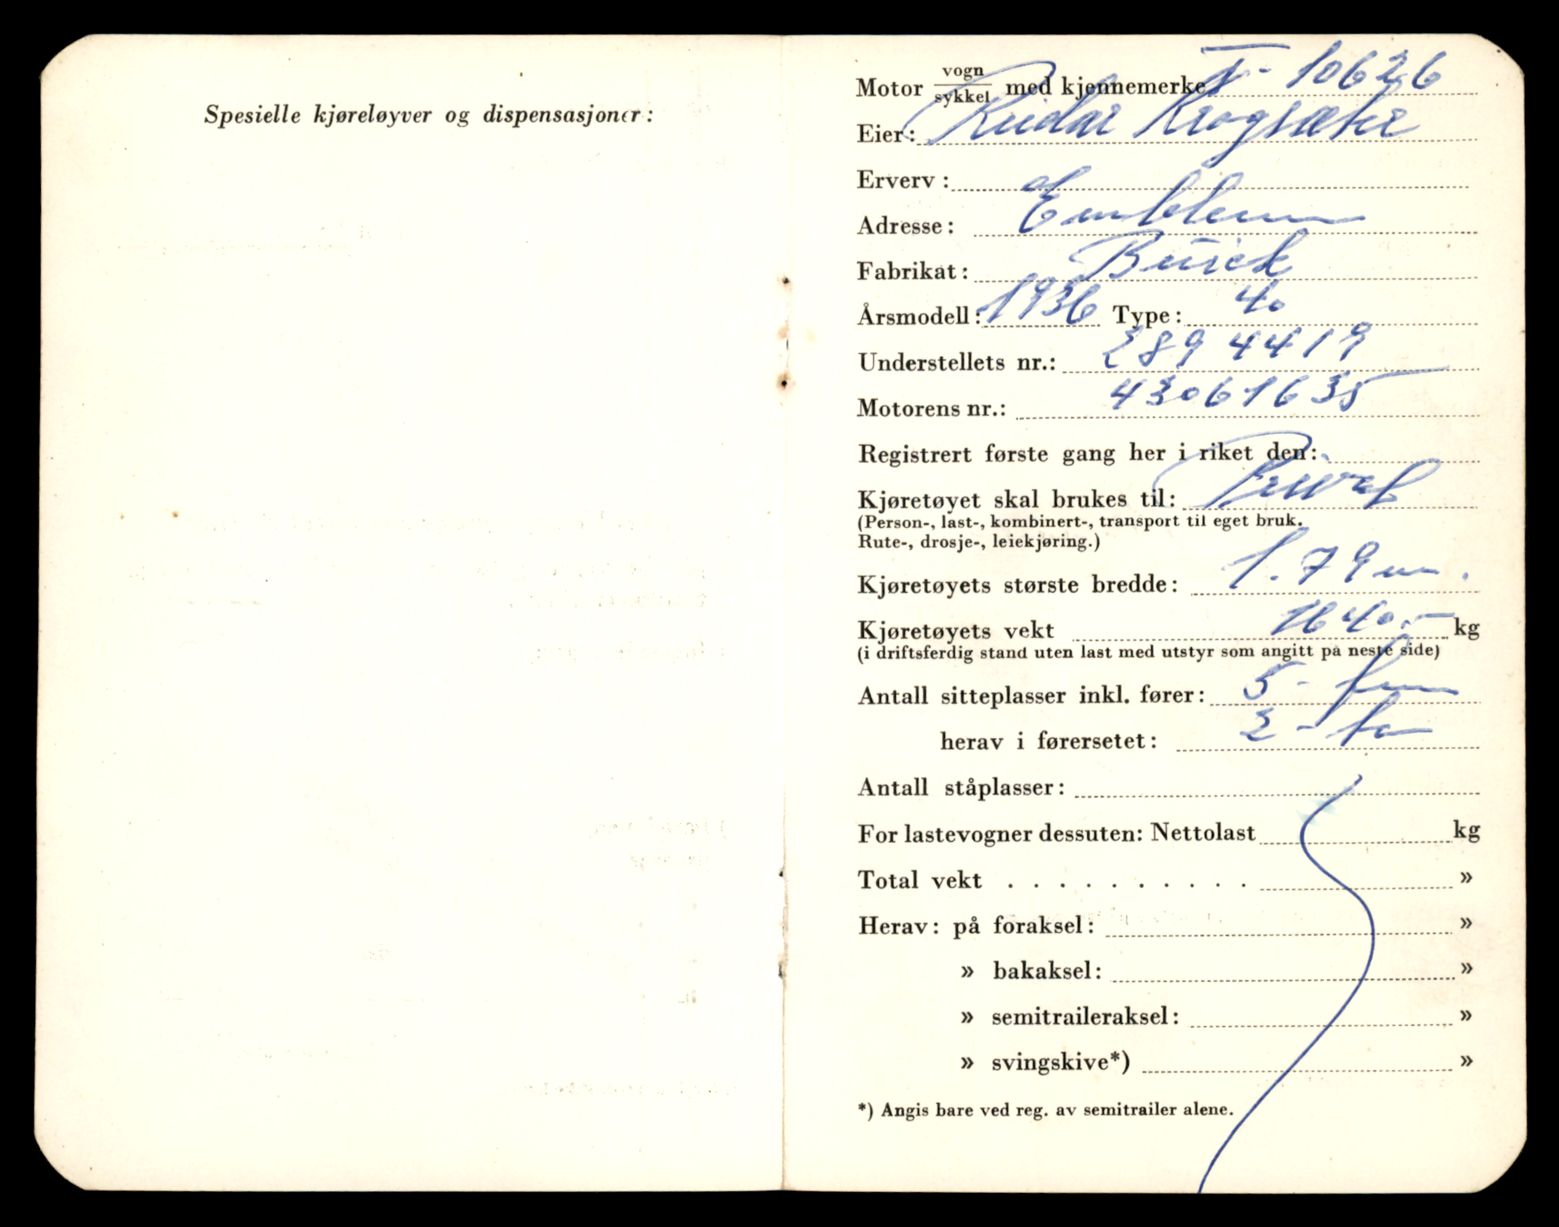 Spesielle kjøreløyver og dispensasjoner:
Motor vogn/sykkel med kjennemerke T-10626
Eier: Reidar Krogsæter
Erverv:
Adresse: Emblem
Fabrikat: Buick
Årsmodell: 1936 Type: 40
Understellets nr.: 2894419
Motorens nr.: 43061635
Registrert første gang her i riket den:
Kjøretøyet skal brukes til: Privat
(Person-, last-, kombinert-, transport til eget bruk.
Rute-, drosje-, leiekjøring.)
Kjøretøyets største bredde: 1.79 m.
Kjøretøyets vekt 1640.- kg
(i driftsferdig stand uten last med utstyr som angitt på neste side)
Antall sitteplasser inkl. fører: 5 - fem
herav i førersetet: 2 - to
Antall ståplasser:
For lastevogner dessuten: Nettolast kg
Total vekt . . . . . . . . . . »
Herav: på foraksel: »
» bakaksel: »
» semitraileraksel: »
» svingskive*) »
*) Angis bare ved reg. av semitrailer alene.